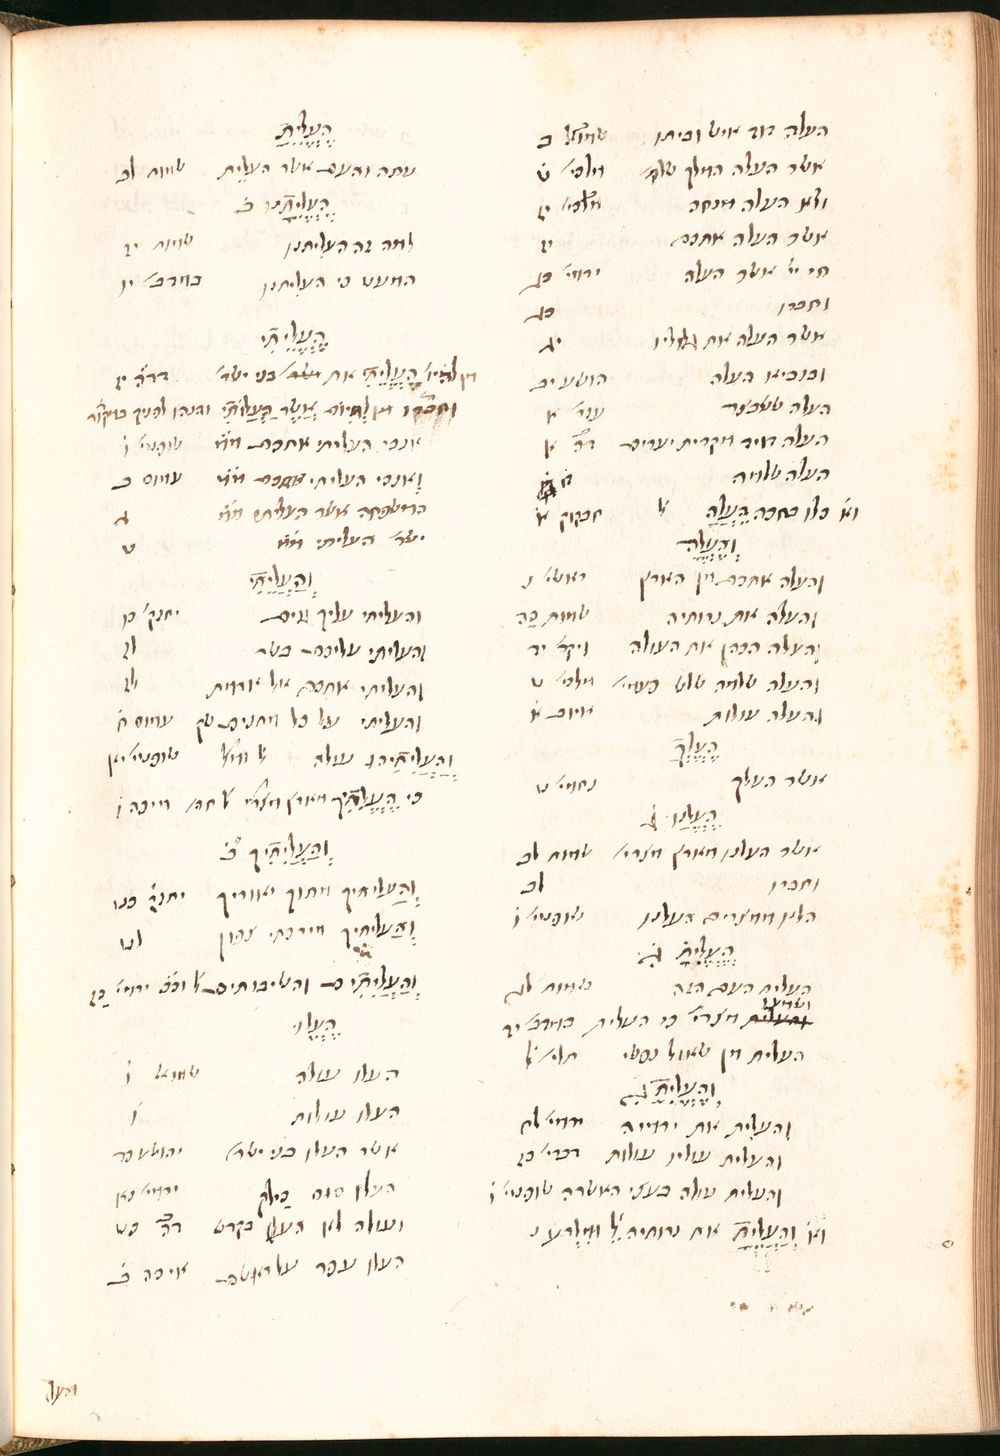 העלה דוד איש וביתו שמואל ב
אשר העלה המלך שלמה מלכי׳ ט
ולא העלה מנחה מלכי׳ יז
אשר העלה אתכם יז
חי יי׳ אשר העלה ירמי׳ כג
וחברו כג
אשר העלה את גלוליו יג
ובנביא העלה הושע יב
העלה ששבצר עזר׳ א
העלה דויד מקרית יערים דה א
העלה שלמה
וא׳ כלו בחכה הֵעֲלָה ל׳ חבקוק א
והעלה
והעלה אתכם מן הארץ ראשי׳ נ
והעלה את נרותיה שמות כה
והעלה הכהן את העולה ויקר׳ יד
והעלה שלמה שלש פעמי׳ מלכי׳ ט
והעלה עולות איוב א
העלך
אשר העלך נחמי׳ ט
העלנו ג
אשר העלנו מארץ מצרי׳ שמות לב
וחברו לב
הלא ממצרים העלנו שופטי׳ ו
העלית ג
העלית העם הזה שמות לג
ושמעו
מצרי׳ כי העלית במדב׳ יד
העלית מן שאול נפשי תלי׳ ל
והעלית ג
והעלית את ירמיה ירמי׳ לח
והעלית עליו עולות
והעלית עולה בעצי האשרה שופטי׳ ו
וא׳ והעלית את נרותיה ל׳ ומלרע
העלית
עתה והעם אשר העלית שמות לב
העליתנו ב
למה זה העליתנו שמות יז
המעט כי העליתנו במדב׳ יו
העליתי
העליתי את בני ישר׳
מן היום אשר העלותי
אנכי העליתי אתכם ממ׳ שופטי׳ ו
ואנכי העליתי אתכם ממ׳ עמוס ב
המשפחה אשר העליתי ממ׳ ג
ישר׳ העליתי ממ׳ ט
והעליתי
והעליתי עליך גוים יחזק׳ כו
והעליתי עליכם בשר לז
והעליתי אתכם אל אדמת לז
והעליתי על כל מתנים שק עמוס ח
והעליתיהו עולה ל׳ ומל׳ שופטי׳ יא
כי העלתיך מארץ מצרי׳ ל׳ מיכה ו
והעליתיך ב
והעליתיך מתוך יאוריך יחזק׳ כט
והעליתיך מירכתי צפון לט
והעליתים והשיבותים ל׳ וכת׳ ירמי׳ כז
העלו
העלו עולה שמואל ו
העלו עולות ו
אשר העלו בני ישר׳ יהושע כד
העלו סוס כילק ירמי׳ נא
ועולה לא העלו בקדש דה כט
העלו עפר על ראשם איכה ב
והעלו